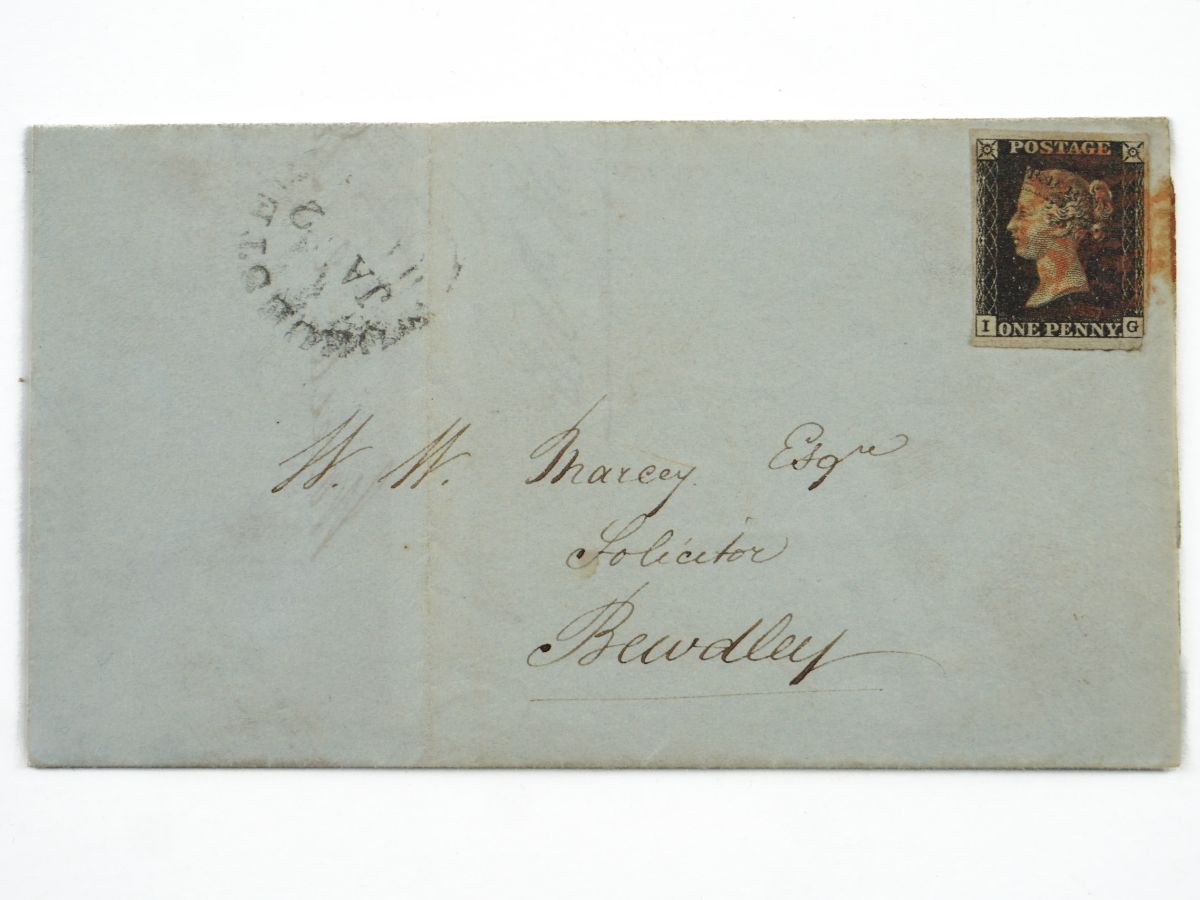 POSTAGE
I ONE PENNY. G
JA
2
W. W. Marcey Esqre
Solicitor
Bewdley